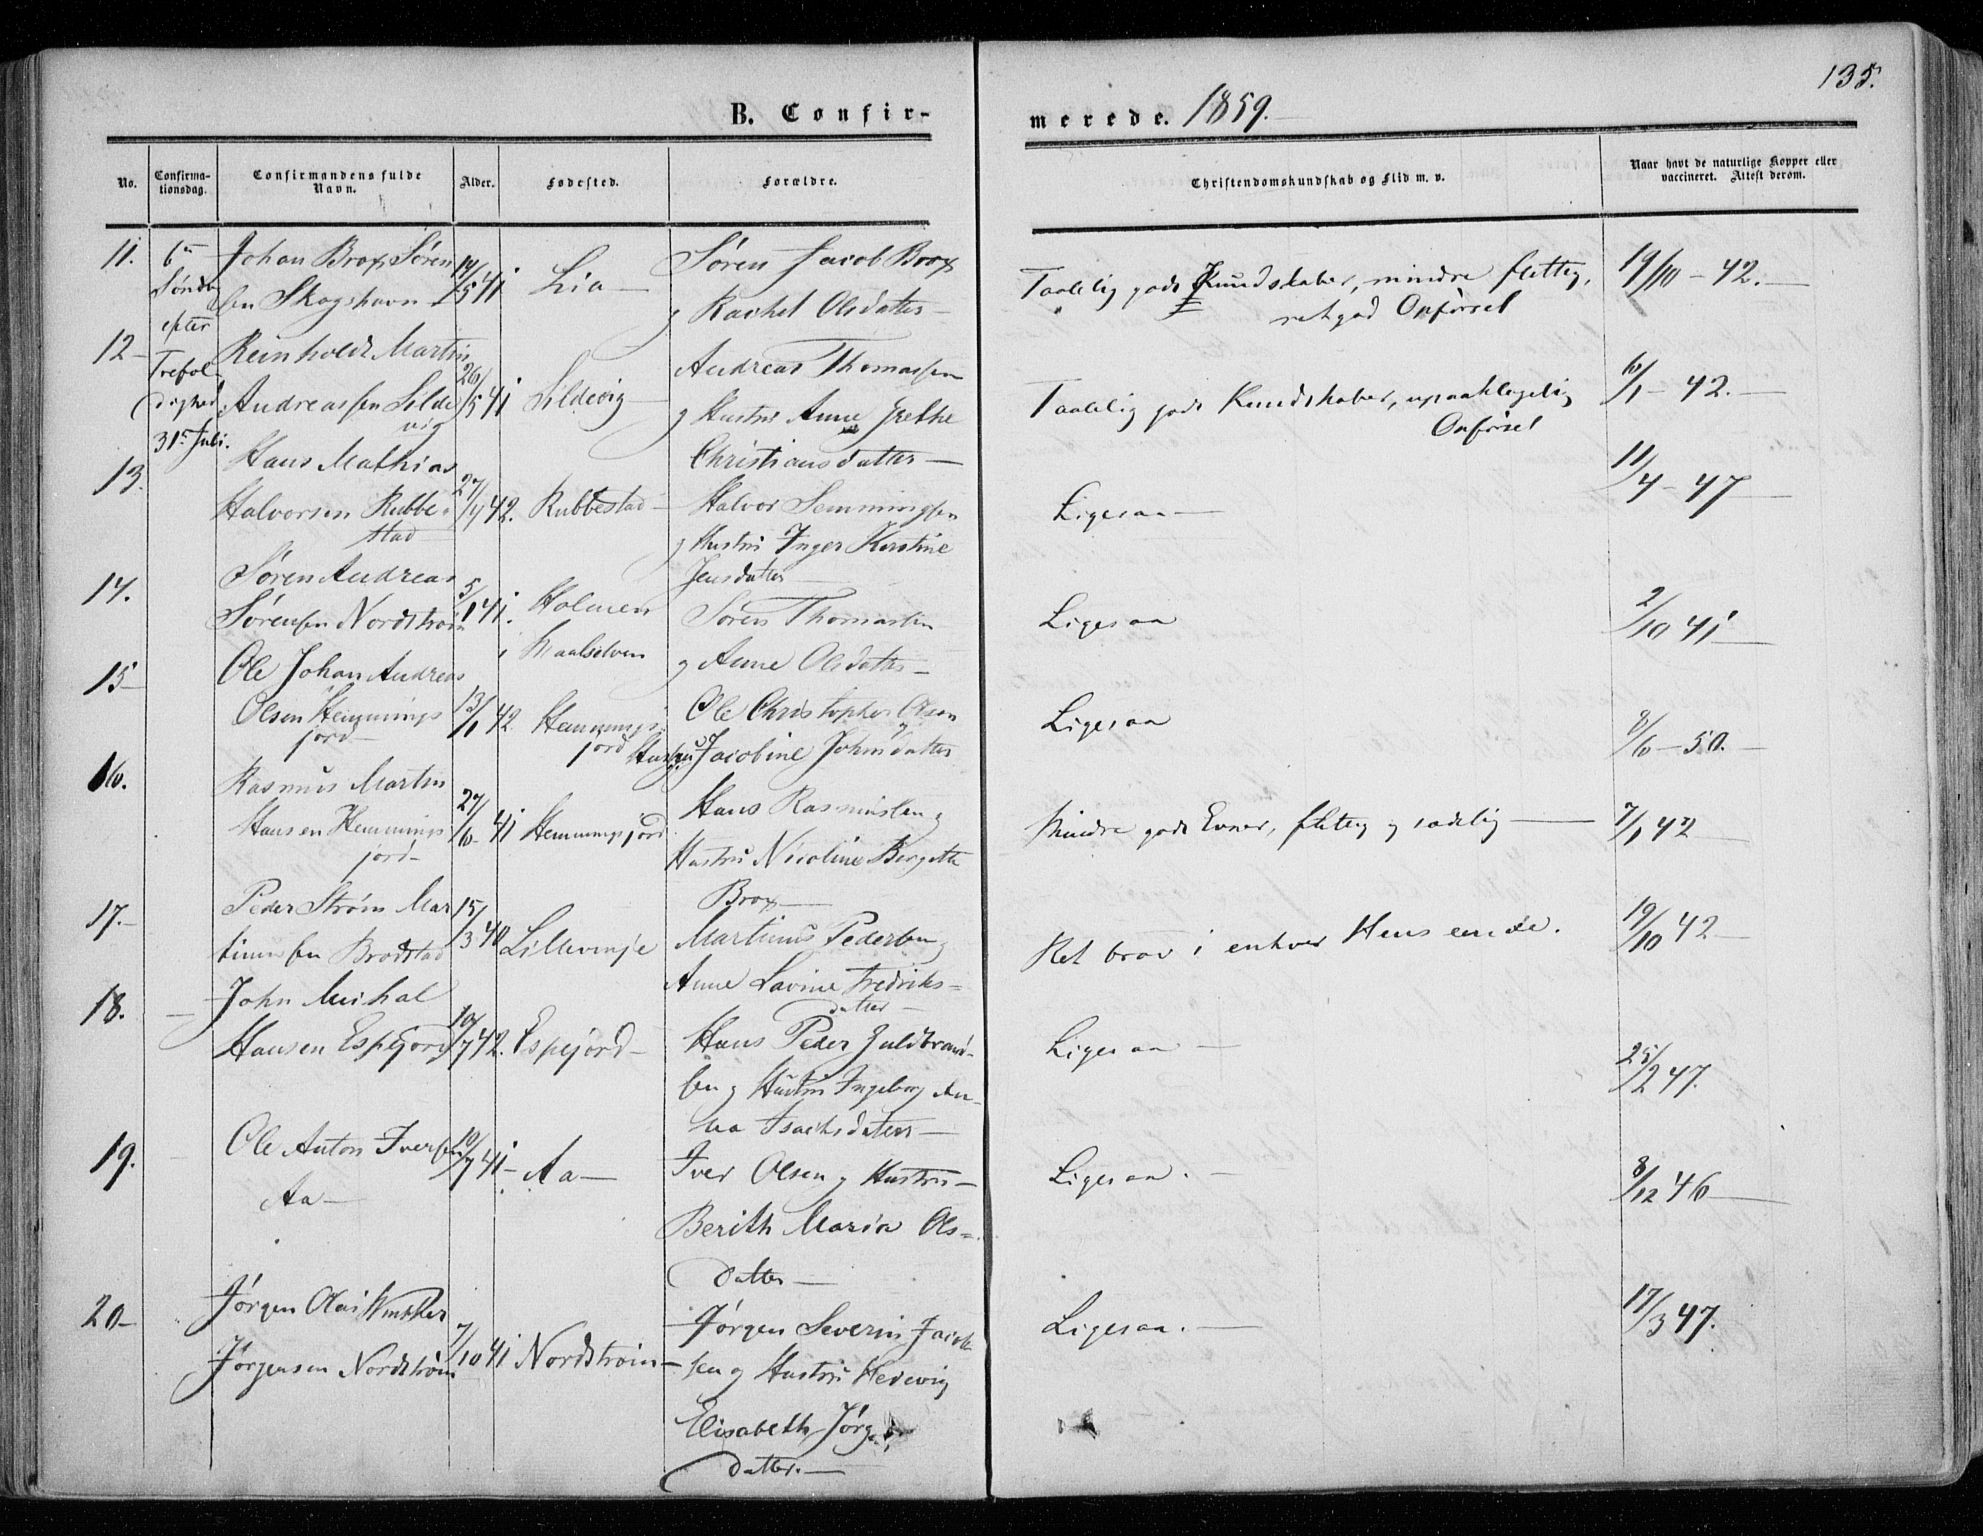 135.
B. Confir-
merede. 1859.
No.
Confirma-
tionsdag.
Confirmandens fulde
Navn.
Alder.
Fødested.
Forældre.
Christendomskundskab og Flid m. v.
Naar havt de naturlige Kopper eller
vaccineret. Attest derom.
6te
Søndag
efter
Trefol-
dighed
31te Juli.
11.
Johan Brox Søren
sen Skogshavn
14/5 41
Lia
Søren Jacob Brox
og Rachel Olsdatter
Taalelig gode Kundskaber, mindre flittig,
retgod Opførsel
19/10 - 42.
12
Reinholdt Martin
Andreassen Silde
vig
26/5 41
Sildevig
Andreas Thomassen
og Hustru Anne Grethe
Christiansdatter
Taalelig gode Kundskaber, upaaklagelig
Opførsel
6/1 - 42.
13.
Hans Mathias
Halvorsen Rubbe-
stad
27/4 42.
Rubbestad
Halvor Semmingsen
og Hustru Inger Kirstine
Jensdatter
Ligesaa
11/4 - 47
14.
Søren Andreas
Sørensen Nordstrøm
5/1 41.
Holmen
i Maalselven
Søren Thomassen
og Anne Olsdatter
Ligesaa
2/10 41
15
Ole Johan Andreas
Olsen Hemmings
jord
13/1 42
Hemmings
jord
Ole Christopher Olsen
og
Hustru Jacobine Johnsdatter
Ligesaa
8/6 - 50.
16.
Rasmus Martin
Hansen Hemmings
jord
27/6 41
Hemmingsjord
Hans Rasmussen og
Hustru Nicoline Bergette
Brox
Mindre gode Evner, flittig og sædelig
7/1 42
17.
Peder Strøm Mar
tinussen Brodstad
15/3 40
Lillevinje
Martinus Pedersen og
Anne Lavine Fredriks-
datter
Ret brav i enhver Henseende.
19/10 42
18.
John Michal
Hansen Espejord
10/7 42.
Espejord
Hans Peder Guldbrand-
sen og Hustru Ingeborg An-
na Isachsdatter
Ligesaa
25/2 47.
19.
Ole Anton Iversen
Aa
10/7 41
Aa
Iver Olsen og Hustru
Berith Maria Ols-
datter
Ligesaa.
8/12 46
20
Jørgen Olai Winther
Jørgensen Nordstrøm
7/10 41
Nordstrøm
Jørgen Severin Jacob
sen og Hustru Hedevig
Elisabeth Jørgens
datter.
Ligesaa.
17/3 47.